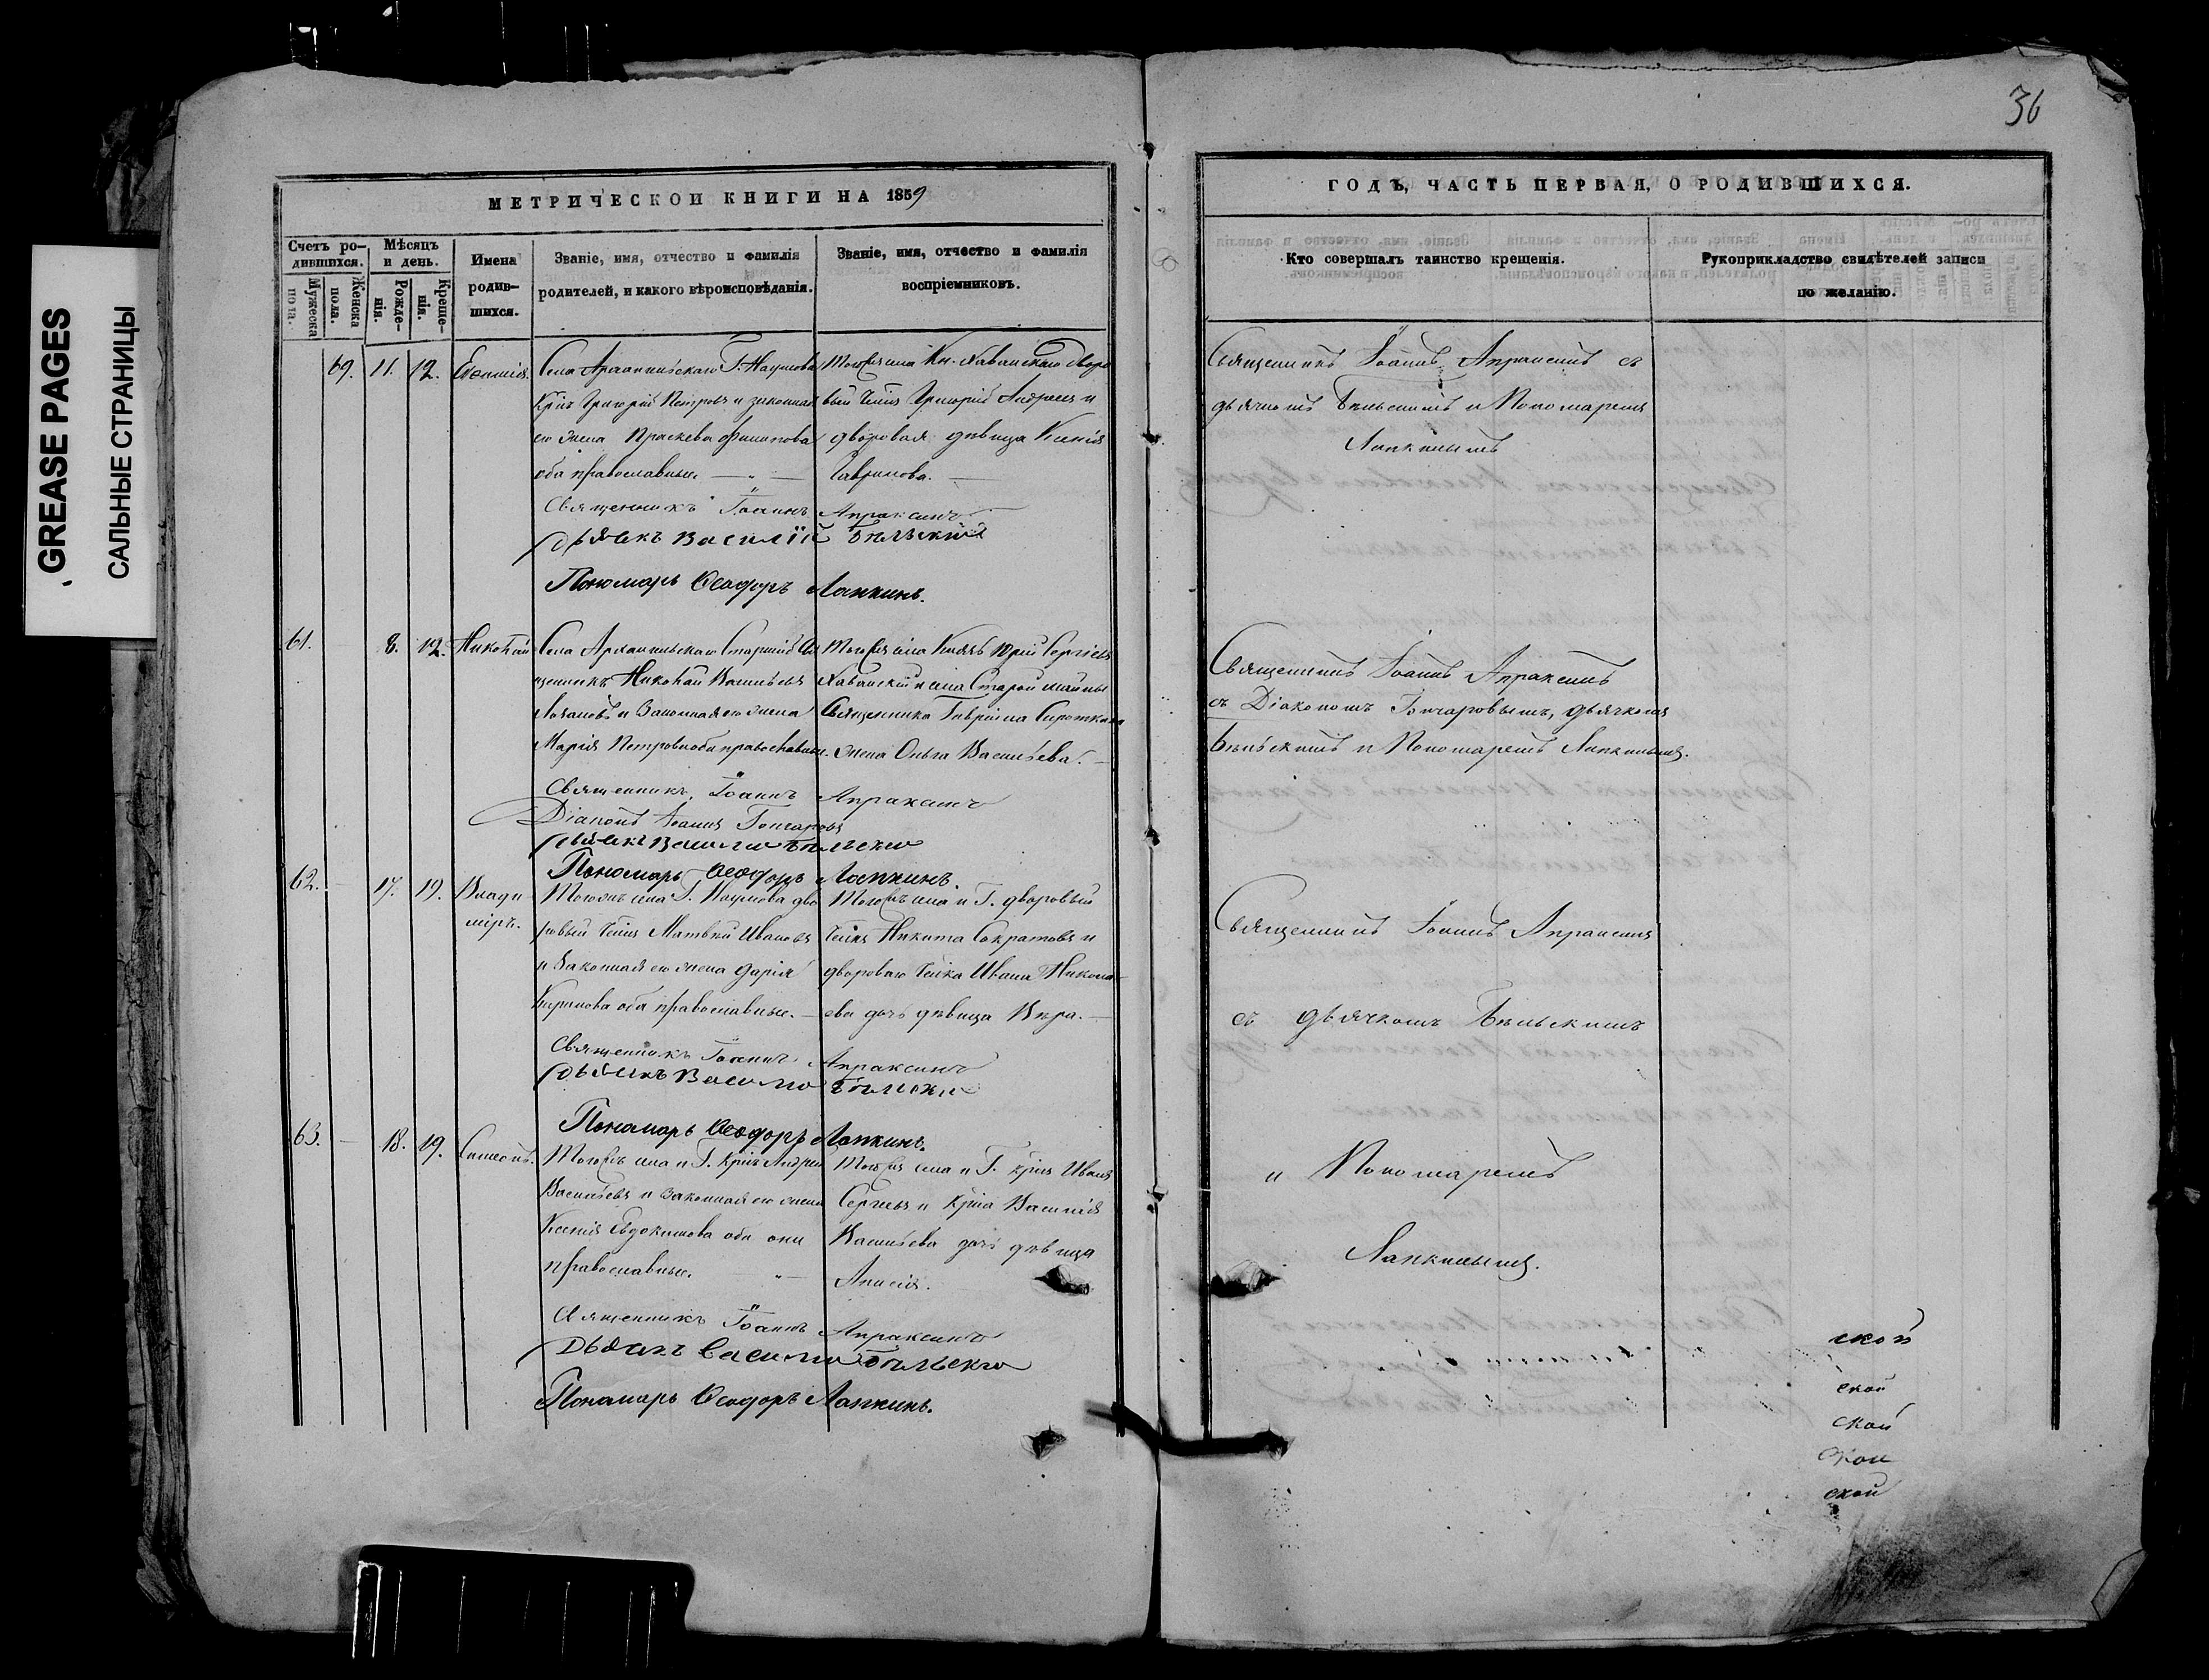 GREASE PAGES
САЛЬНЫЕ СТРАНИЦЫ
36
МЕТРИЧЕСКОЙ КНИГИ НА 1859
Счетъ родившихся.
Мужеска пола.
Женска пола.
Мѣсяцъ и день.
Рожденія.
Крещенія.
Имена родившихся.
Званіе, имя, отчество и фамилія
родителей, и какого вѣроисповѣданія.
Званіе, имя, отчество и фамилія
воспріемниковъ.
69. 11. 12.
Села Г. Наумова
Крнъ Григорій Петровъ и законная
его жена Праскева Филипова
оба православные.
Священникъ Іоаннъ Апраксинъ
Дьячекъ Василій Бѣльскій
Пономарь Ѳеодоръ Лапкинъ.
Тогожъ села Кн. Хованскаго дворо
вый Григорій Андреевъ и
дворовая дѣвица Ксенія
Гаврилова.
61. 8. 12. Николай
Села Архангельскаго Старшій Свя
щенникъ Николай Васильевъ
и Законная его жена
Марія Петровна оба православные.
Священникъ Іоаннъ Апраксинъ
Діаконъ Іоаннъ Гончаровъ
Дьячекъ Василій Бѣльскій
Пономарь Ѳеодоръ Лапкинъ.
Тогожъ села Князь Юрій Сергіевъ
Хованскій и села Старой Майны
Священника Гавріила Сироткина
жена Ольга Васильева.
62. 17. 19. Влади
міръ.
Тогожъ села Г. Наумова дво
ровый Матвѣй Ивановъ
и Законная его жена Дарія
Кирилова оба православные.
Священникъ Іоаннъ Апраксинъ
Дьячекъ Василій Бѣльскій
Пономарь Ѳеодоръ Лапкинъ.
Тогожъ села и Г. дворовый
Никита Сократовъ и
двороваго Ивана Никола
ева дочь дѣвица Вѣра.
63. 18. 19. Симеонъ.
Тогожъ села и Г. Крнъ Андрей
Васильевъ и Законная его жена
Ксенія Евдокимова оба они
православные.
Священникъ Іоаннъ Апраксинъ
Дьячекъ Василій Бѣльскій
Пономарь Ѳеодоръ Лапкинъ.
Тогожъ села и Г. крнъ Иванъ
Сергѣевъ и Крна Василія
Васильева дочь дѣвица
Анисія.
ГОДЪ, ЧАСТЬ ПЕРВАЯ, О РОДИВШИХСЯ.
Кто совершалъ таинство крещенія.
Рукоприкладство свидѣтелей записи
по желанію.
Священникъ Іоаннъ Апраксинъ съ
дьячкомъ Бѣльскимъ и Пономаремъ
Лапкинымъ
Священникъ Іоаннъ Апраксинъ
съ Діакономъ Гончаровымъ, дьячкомъ
Бѣльскимъ и Пономаремъ Лапкинымъ.
Священникъ Іоаннъ Апраксинъ
съ дьячкомъ Бѣльскимъ
и Пономаремъ
Лапкинымъ.
ской
ской
ской
ской
ской